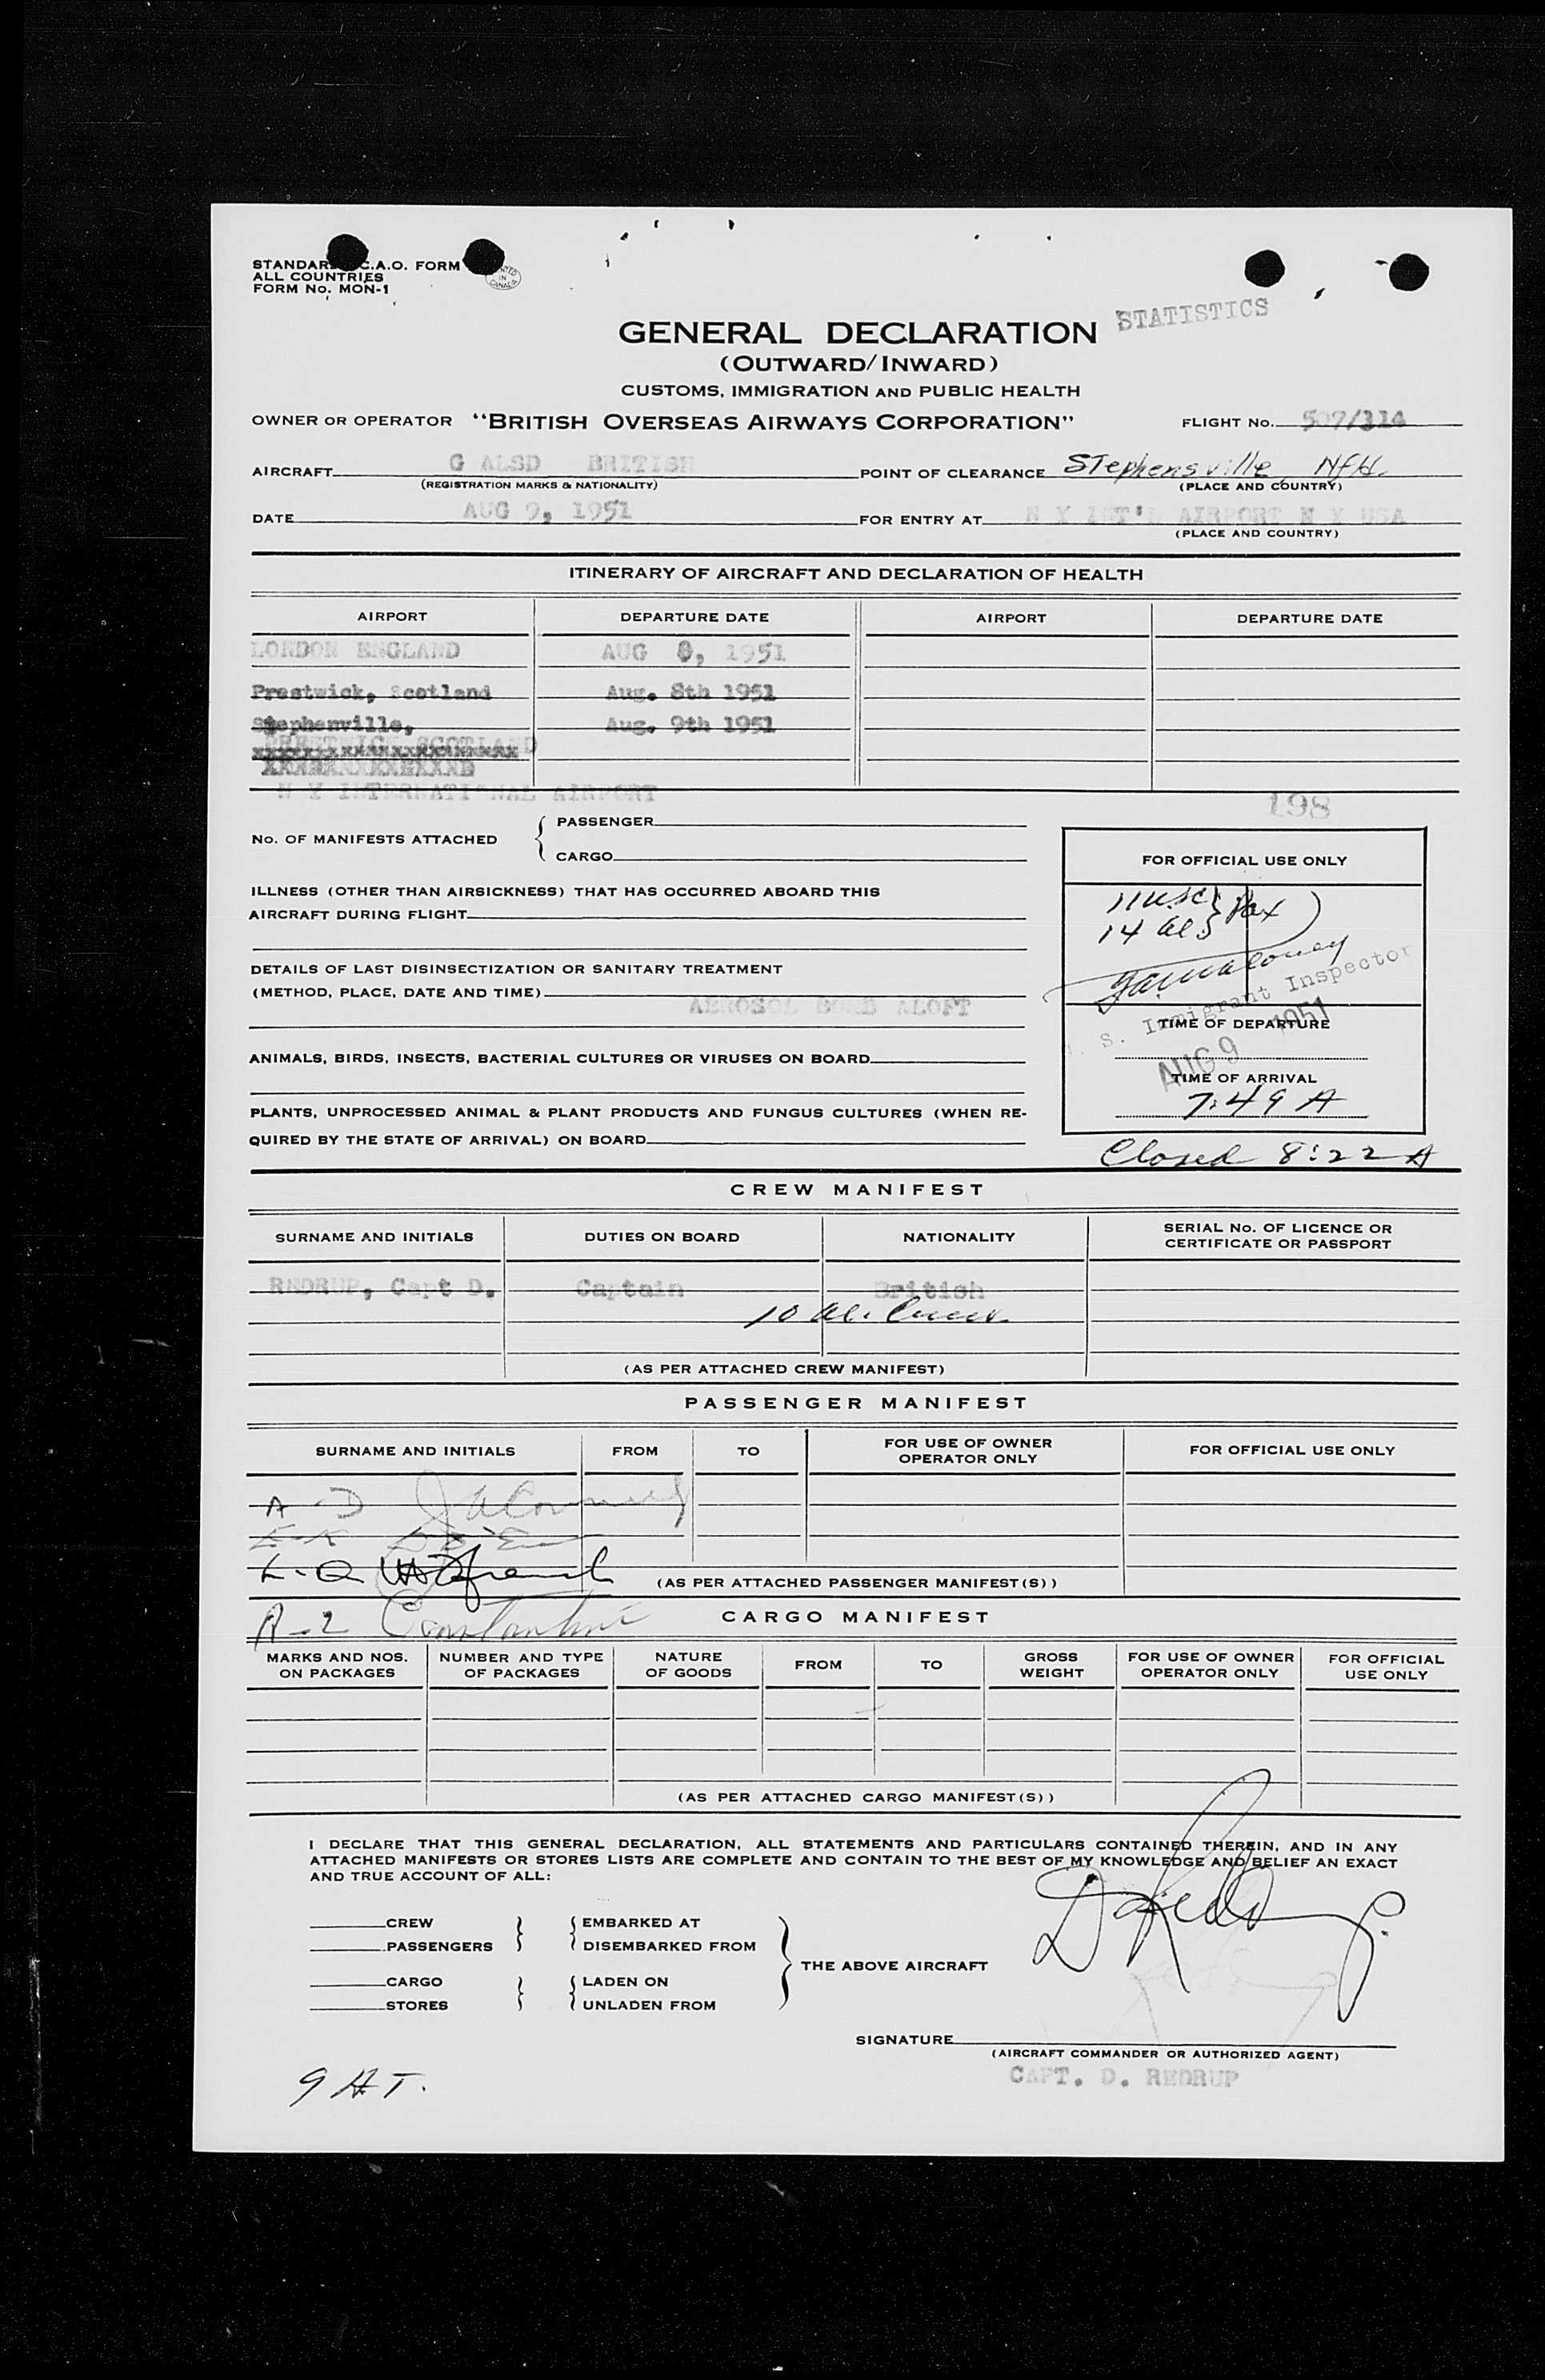 STANDARD I.C.A.O. FORM
ALL COUNTRIES
FORM No. MON-1
IN
CANADA
STATISTICS
GENERAL DECLARATION
(OUTWARD/INWARD)
CUSTOMS, IMMIGRATION AND PUBLIC HEALTH
OWNER OR OPERATOR "BRITISH OVERSEAS AIRWAYS CORPORATION" FLIGHT No. 509/114
AIRCRAFT G ALSD BRITISH POINT OF CLEARANCE Stephensville Nfld.
(REGISTRATION MARKS & NATIONALITY) (PLACE AND COUNTRY)
DATE AUG 9, 1951 FOR ENTRY AT N Y INT'L AIRPORT N Y USA
(PLACE AND COUNTRY)
ITINERARY OF AIRCRAFT AND DECLARATION OF HEALTH
AIRPORT DEPARTURE DATE AIRPORT DEPARTURE DATE
LONDON ENGLAND AUG 8, 1951
Prestwick, Scotland Aug. 8th 1951
Stephenville, Aug. 9th 1951
N Y INTERNATIONAL AIRPORT
198
No. OF MANIFESTS ATTACHED { PASSENGER
CARGO
FOR OFFICIAL USE ONLY
11 USC } Pax
14 Al }
ILLNESS (OTHER THAN AIRSICKNESS) THAT HAS OCCURRED ABOARD THIS
AIRCRAFT DURING FLIGHT
DETAILS OF LAST DISINSECTIZATION OR SANITARY TREATMENT
(METHOD, PLACE, DATE AND TIME)
AEROSOL BOMB ALOFT
S. Immigrant Inspector
AUG 9 1951
TIME OF DEPARTURE
ANIMALS, BIRDS, INSECTS, BACTERIAL CULTURES OR VIRUSES ON BOARD
TIME OF ARRIVAL
7:49 A
PLANTS, UNPROCESSED ANIMAL & PLANT PRODUCTS AND FUNGUS CULTURES (WHEN RE-
QUIRED BY THE STATE OF ARRIVAL) ON BOARD
Closed 8:22 A
CREW MANIFEST
SURNAME AND INITIALS DUTIES ON BOARD NATIONALITY SERIAL No. OF LICENCE OR
CERTIFICATE OR PASSPORT
REDRUP, Capt D. Captain British
10 Al. Crew
(AS PER ATTACHED CREW MANIFEST)
PASSENGER MANIFEST
SURNAME AND INITIALS FROM TO FOR USE OF OWNER
OPERATOR ONLY FOR OFFICIAL USE ONLY
A - D
E-K
L-Q
(AS PER ATTACHED PASSENGER MANIFEST(S))
R-Z
CARGO MANIFEST
MARKS AND NOS.
ON PACKAGES NUMBER AND TYPE
OF PACKAGES NATURE
OF GOODS FROM TO GROSS
WEIGHT FOR USE OF OWNER
OPERATOR ONLY FOR OFFICIAL
USE ONLY
(AS PER ATTACHED CARGO MANIFEST(S))
I DECLARE THAT THIS GENERAL DECLARATION, ALL STATEMENTS AND PARTICULARS CONTAINED THEREIN, AND IN ANY
ATTACHED MANIFESTS OR STORES LISTS ARE COMPLETE AND CONTAIN TO THE BEST OF MY KNOWLEDGE AND BELIEF AN EXACT
AND TRUE ACCOUNT OF ALL:
D Redrup.
CREW } { EMBARKED AT
PASSENGERS DISEMBARKED FROM
THE ABOVE AIRCRAFT
CARGO } { LADEN ON
STORES UNLADEN FROM
SIGNATURE
(AIRCRAFT COMMANDER OR AUTHORIZED AGENT)
CAPT. D. REDRUP
9 HT.